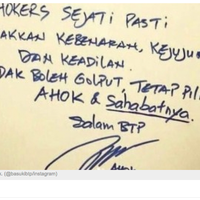 HOKERS SEJATI PASTI
AKKAN KEBENARAN, KEJUJU
DAN KEADILAN.
DAK BOLEH GOLPUT, TETAP PIL
AHOK & Sahabatnya.
Salam BTP
(@basukibtp/Instagram)